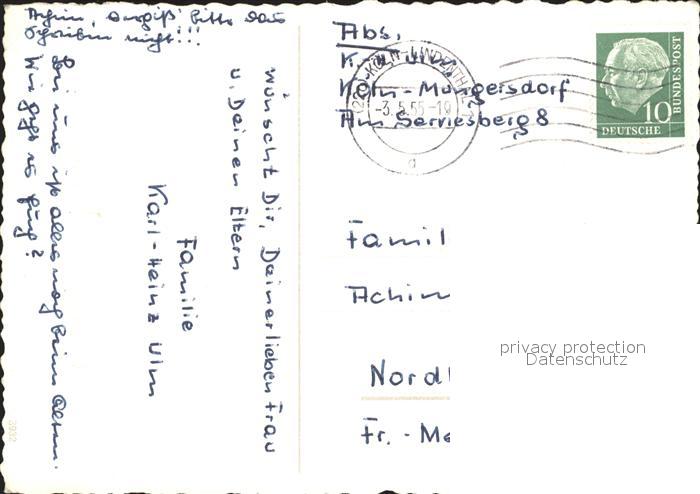 Achim, vergiß bitte das
Schreiben nicht!!!
wünscht Dir, Deiner lieben Frau
u. Deinen Eltern
Familie
Karl-Heinz Ulm
Bei uns ist alles noch beim Alten.
Wie geht es
Abs.
K.
Köln-Müngersdorf
Am Serviesberg 8
KÖLN-LINDENTHAL
-3.5.55-19
a
10
DEUTSCHE
BUNDESPOST
Famil
Achim
Nordl
Fr. - Me
privacy protection
Datenschutz